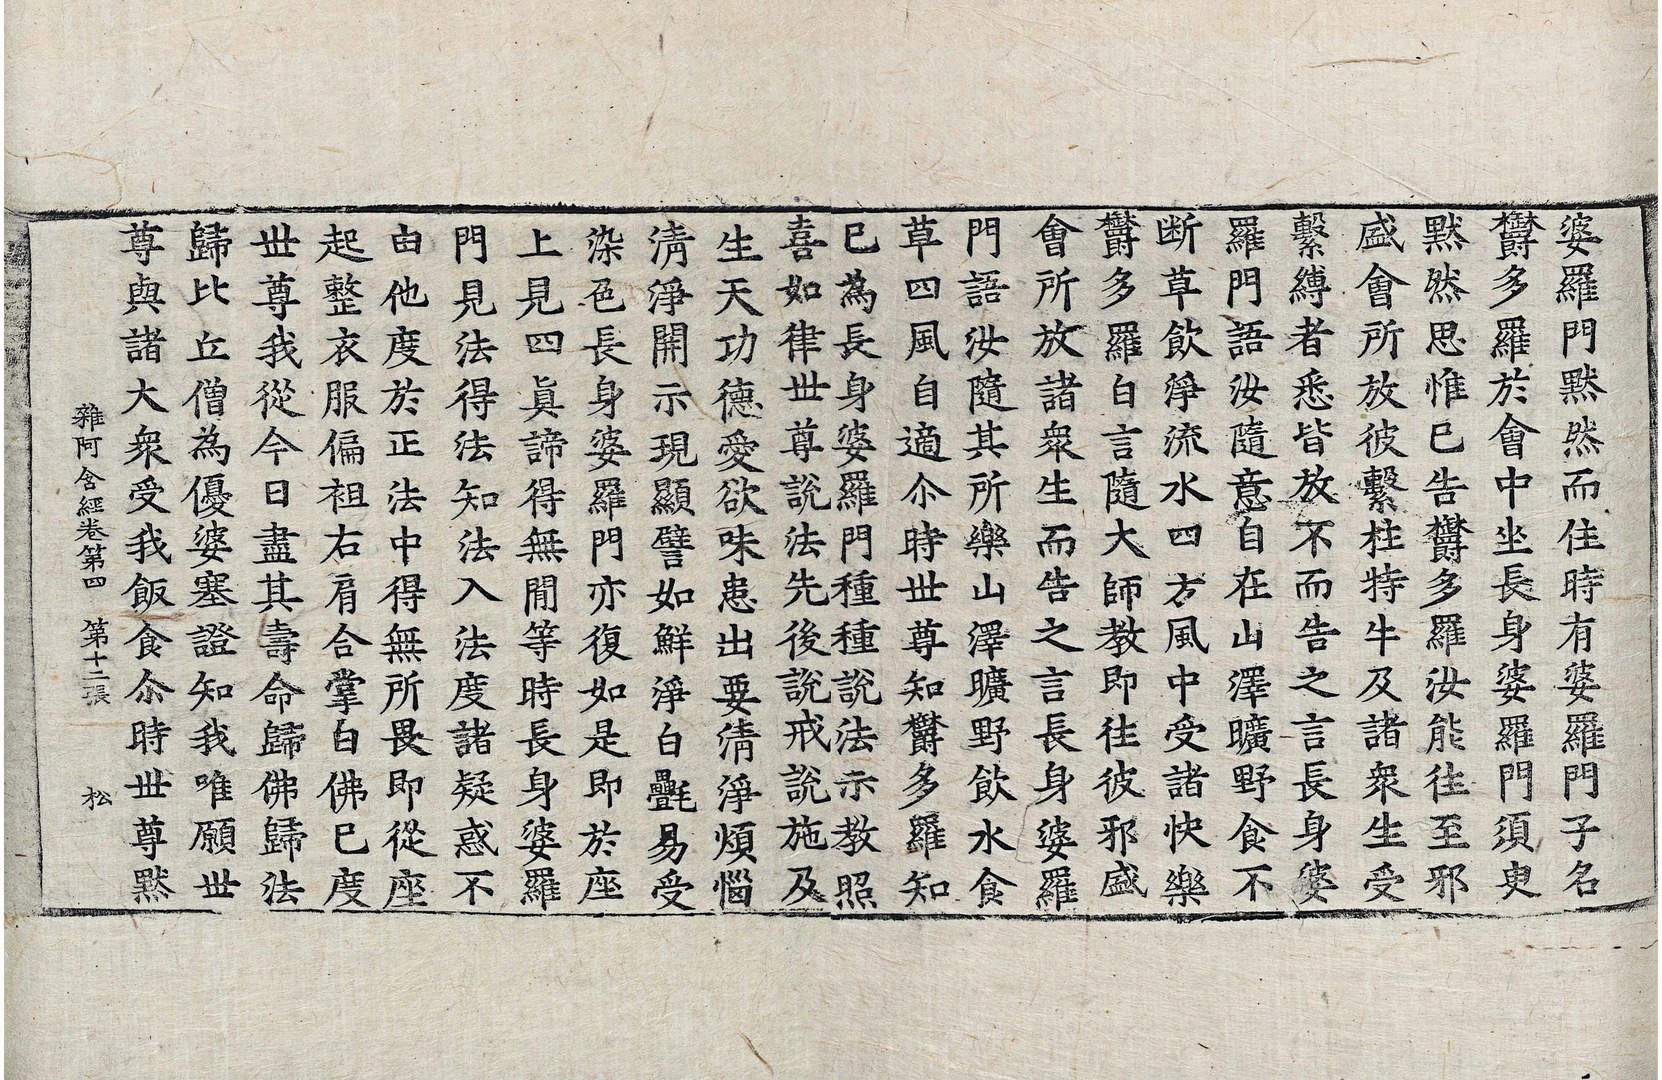 婆羅門默然而住時有婆羅門子名
欝多羅於會中坐長身婆羅門須臾
默然思惟已告欝多羅汝能往至邪
盛會所放彼繫柱特牛及諸衆生受
繫縛者悉皆放不而告之言長身婆
羅門語汝隨意自在山澤曠野食不
断草飲淨流水四方風中受諸快樂
欝多羅白言隨大師教即往彼邪盛
會所放諸衆生而告之言長身婆羅
門語汝隨其所樂山澤曠野飲水食
草四風自適尒時世尊知欝多羅知
已為長身婆羅門種種說法示教照
喜如律世尊說法先後說戒說施及
生天功德愛欲味患出要清淨煩惱
清淨開示現顯譬如鮮淨白㲲易受
染色長身婆羅門亦復如是即於座
上見四真諦得無間等時長身婆羅
門見法得法知法入法度諸疑惑不
由他度於正法中得無所畏即從座
起整衣服偏袒右肩合掌白佛已度
世尊我從今日盡其壽命歸佛歸法
歸比丘僧為優婆塞證知我唯願世
尊與諸大衆受我飯食尒時世尊默
雜阿含經卷第四　第十二張　松